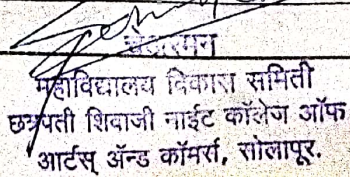 चेअरमन
महाविद्यालय विकास समिती
छत्रपती शिवाजी नाईट कॉलेज ऑफ
आर्टस् ॲन्ड कॉमर्स, सोलापूर.